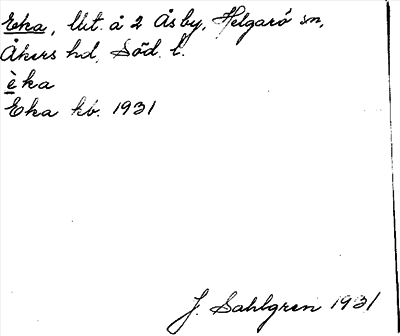 Eka, Ut. å 2 Åsby, Helgarö sn,
Åkers hd, Söd. l.
èka
Eka kb. 1931
J. Sahlgren 1931